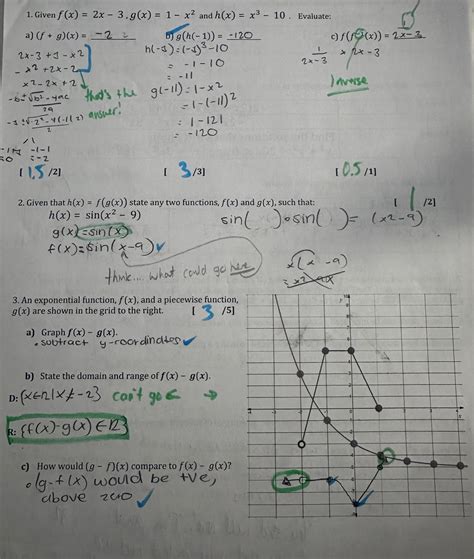 1. Given f(x) = 2x − 3, g(x) = 1 − x² and h(x) = x³ − 10 . Evaluate:
a) (f + g)(x) = −2
b) g(h(−1)) = −120
c) f(f⁻¹(x)) = 2x−3
2x−3 + 1 − x²
− x² + 2x − 2
x² − 2x + 2
that's the answer!
h(−1) = (−1)³ − 10
= −1 − 10
= −11
g(−11) = 1 − x²
= 1 − (−11)²
= 1 − 121
= −120
1/2x−3 × 2x−3
Inverse
[ 1.5 /2]
[ 3 /3]
[ 0.5 /1]
2. Given that h(x) = f(g(x)) state any two functions, f(x) and g(x), such that:
[ 1 /2]
h(x) = sin(x² − 9)
g(x) = sin(x)
f(x) = sin(x−9)
sin( ) ∘ sin( ) = (x² − 9)
think... what could go here
x(x − 9)
= x² − 9x
3. An exponential function, f(x), and a piecewise function,
g(x) are shown in the grid to the right.
[ 3 /5]
a) Graph f(x) − g(x).
• subtract y-coordinates
b) State the domain and range of f(x) − g(x).
D: {x∈R | x ≠ −2} can't go
R: {f(x)−g(x) ∈ R}
c) How would (g − f)(x) compare to f(x) − g(x)?
(g−f(x) would be +ve,
above zero